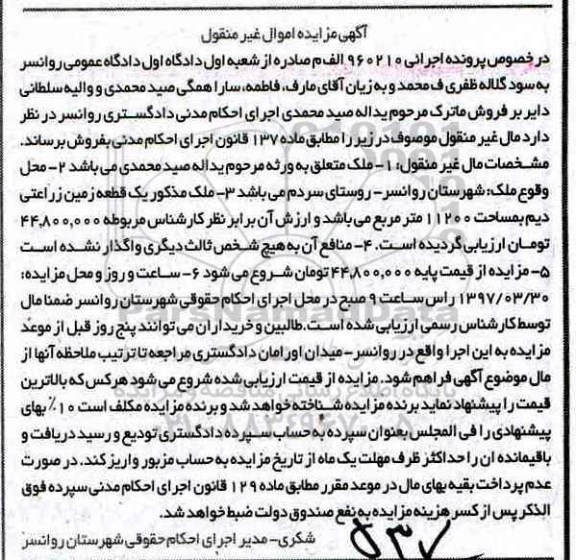 آگهی مزایده اموال غیر منقول
در خصوص پرونده اجرائی ۹۶۰۲۱۰ الف م صادره از شعبه اول دادگاه اول دادگاه عمومی روانسر
به سود گلاله ظفری ف محمد و به زیان آقای مارف، فاطمه، سارا همگی صید محمدی و والیه سلطانی
دایر بر فروش ماترک مرحوم یداله صید محمدی اجرای احکام مدنی دادگستری روانسر در نظر
دارد مال غیر منقول موصوف در زیر را مطابق ماده ۱۳۷ قانون اجرای احکام مدنی بفروش برساند.
مشخصات مال غیر منقول: ۱- ملک متعلق به ورثه مرحوم یداله صید محمدی می باشد ۲- محل
وقوع ملک: شهرستان روانسر- روستای سردم می باشد ۳- ملک مذکور یک قطعه زمین زراعتی
دیم بمساحت ۱۱۲۰۰ متر مربع می باشد و ارزش آن برابر نظر کارشناس مربوطه ۴۴,۸۰۰,۰۰۰
تومان ارزیابی گردیده است. ۴- منافع آن به هیچ شخص ثالث دیگری واگذار نشده است
۵- مزایده از قیمت پایه ۴۴,۸۰۰,۰۰۰ تومان شروع می شود ۶- ساعت و روز و محل مزایده:
۱۳۹۷/۰۳/۳۰ راس ساعت ۹ صبح در محل اجرای احکام حقوقی شهرستان روانسر ضمنا مال
توسط کارشناس رسمی ارزیابی شده است. طالبین و خریداران می توانند پنج روز قبل از موعد
مزایده به این اجرا واقع در روانسر- میدان اورامان دادگستری مراجعه تا ترتیب ملاحظه آنها از
مال موضوع آگهی فراهم شود. مزایده از قیمت ارزیابی شده شروع می شود هر کس که بالاترین
قیمت را پیشنهاد نماید برنده مزایده شناخته خواهد شد و برنده مزایده مکلف است ۱۰٪ بهای
پیشنهادی را فی المجلس بعنوان سپرده به حساب سپرده دادگستری تودیع و رسید دریافت و
باقیمانده ان را حداکثر ظرف مهلت یک ماه از تاریخ مزایده به حساب مزبور واریز کند. در صورت
عدم پرداخت بقیه بهای مال در موعد مقرر مطابق ماده ۱۲۹ قانون اجرای احکام مدنی سپرده فوق
الذکر پس از کسر هزینه مزایده به نفع صندوق دولت ضبط خواهد شد.
شکری- مدیر اجرای احکام حقوقی شهرستان روانسر